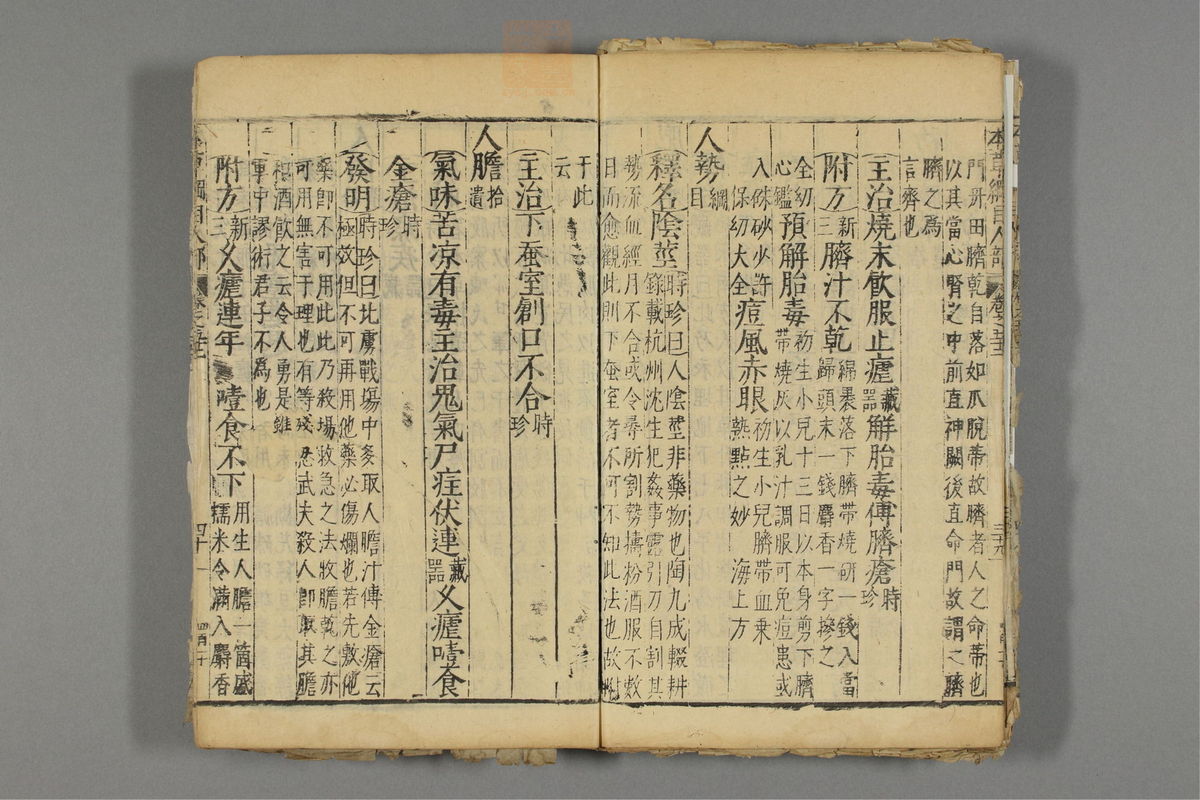 門丹田臍乾自落如爪脫蒂故臍者人之命蒂也
以其當心腎之中前直神闕後直命門故謂之臍
臍之爲
言齊也
主治燒末飲服止瘧藏器解胎毒傅臍瘡時珍
附方新三臍汁不乾綿裹落下臍帶燒研一錢入當
歸頭末一錢麝香一字摻之
全幼心鑑預解胎毒初生小兒十三日以本身剪下臍
帶燒灰以乳汁調服可免痘患或
入硃砂少許
保幼大全痘風赤眼初生小兒臍帶血乗
熱點之妙 海上方
人勢綱目
釋名陰莖時珍曰人陰莖非藥物也陶九成輟耕
錄載杭州沈生犯姦事露引刀自割其
勢流血經月不合或令尋所割勢擣粉酒服不數
日而愈觀此則下蚕室者不可不知此法也故附
于此
云
主治下蚕室創口不合時珍
人膽拾遺
氣味苦凉有毒主治鬼氣尸疰伏連藏器乂瘧噎食
金瘡時珍
發明時珍曰北虜戰場中多取人膽汁傅金瘡云
極效但不可再用他藥必傷爛也若先敷他
藥卽不可用此此乃殺場救急之法收膽乾之亦
可用無害于理也有等殘忍武夫殺人卽取其膽
和酒飲之云令人勇是雖
軍中謬術君子不爲也
附方新三乂瘧連年 噎食不下用生人膽一箇盛
糯米令滿入麝香